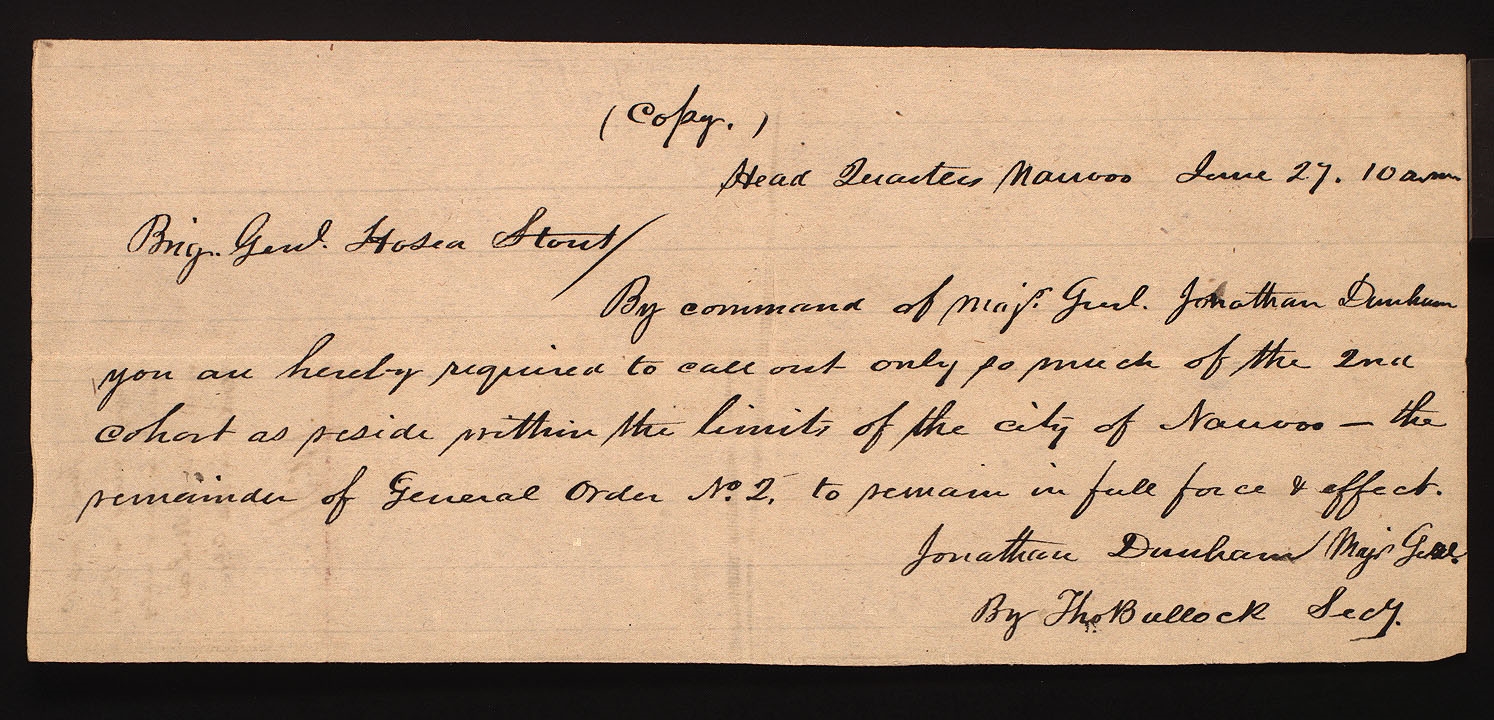 (Copy.)
Head Quarters Nauvoo June 27. 10 a.m
Brig. Genl. Hosea Stout/
By command of Majr. Genl. Jonathan Dunham
you are hereby required to call out only so much of the 2nd
cohort as reside within the limits of the city of Nauvoo – the
remainder of General Order No. 2, to remain in full force & effect.
Jonathan Dunham Majr Genl.
By Thos. Bullock Secy.